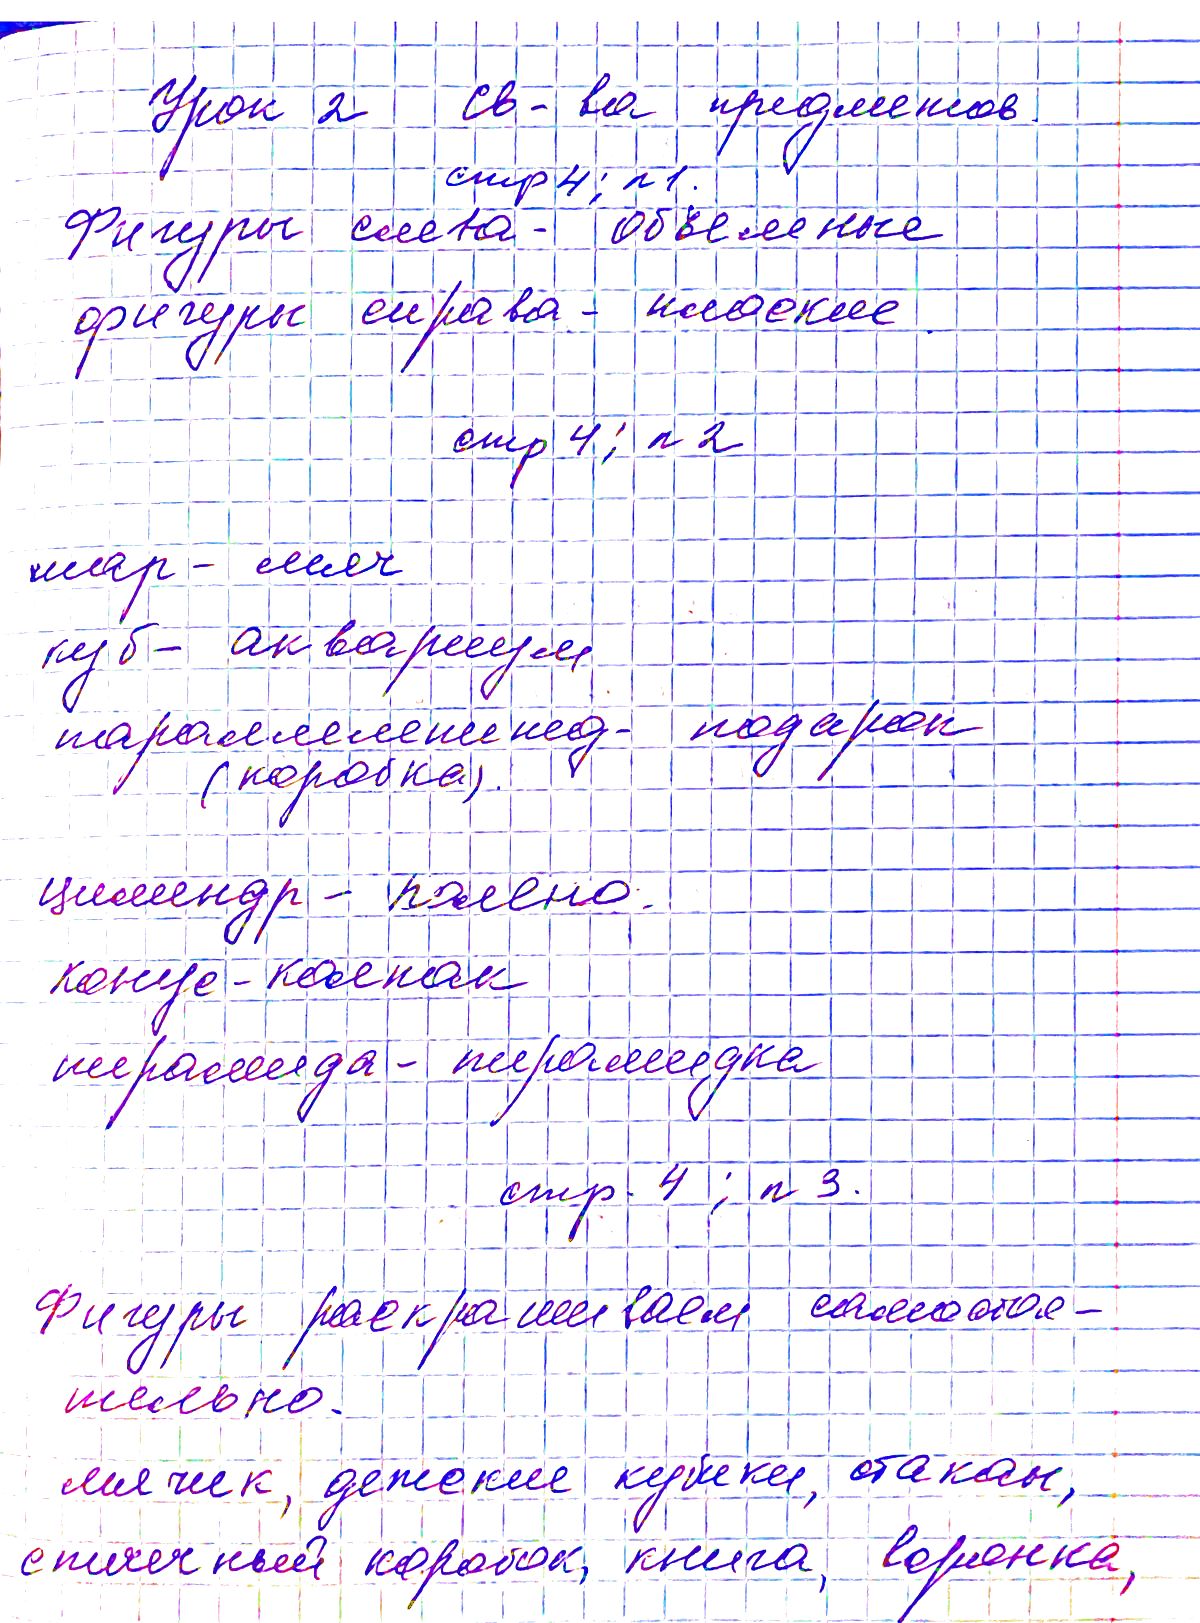 Урок 2 Св-ва предметов.
стр 4; п 1.
Фигуры слева - объемные
фигуры справа - плоские.
стр 4; п 2
шар - мяч
куб - аквариум
параллелепипед - подарок
(коробка).
цилиндр - полено.
конус - колпак
пирамида - пирамидка
стр. 4 ; п 3.
Фигуры раскрашиваем самостоя-
тельно.
мячик, детские кубики, стакан,
спичечный коробок, книга, воронка,